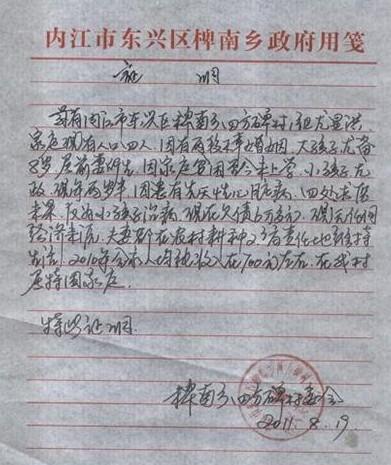 内江市东兴区椑南乡政府用笺
证 明
兹有内江市东兴区椑南乡四方碑村1组尤
家庭现有人口四人,因有两段 婚姻,大孩子尤
8岁, 因家庭贫困至今未上学,小孩子尤
现年两岁半,因患有先天性心脏病,四处求医
未果,小孩子治病,现在欠债6万多元,现无任何
经济来源,夫妻俩在农村耕种2.3亩责任地维持
生活,2010年全家人均纯收入在700元左右,在我村
属特困家庭。
特此证明
椑南乡四方碑村委会
2011.8.19